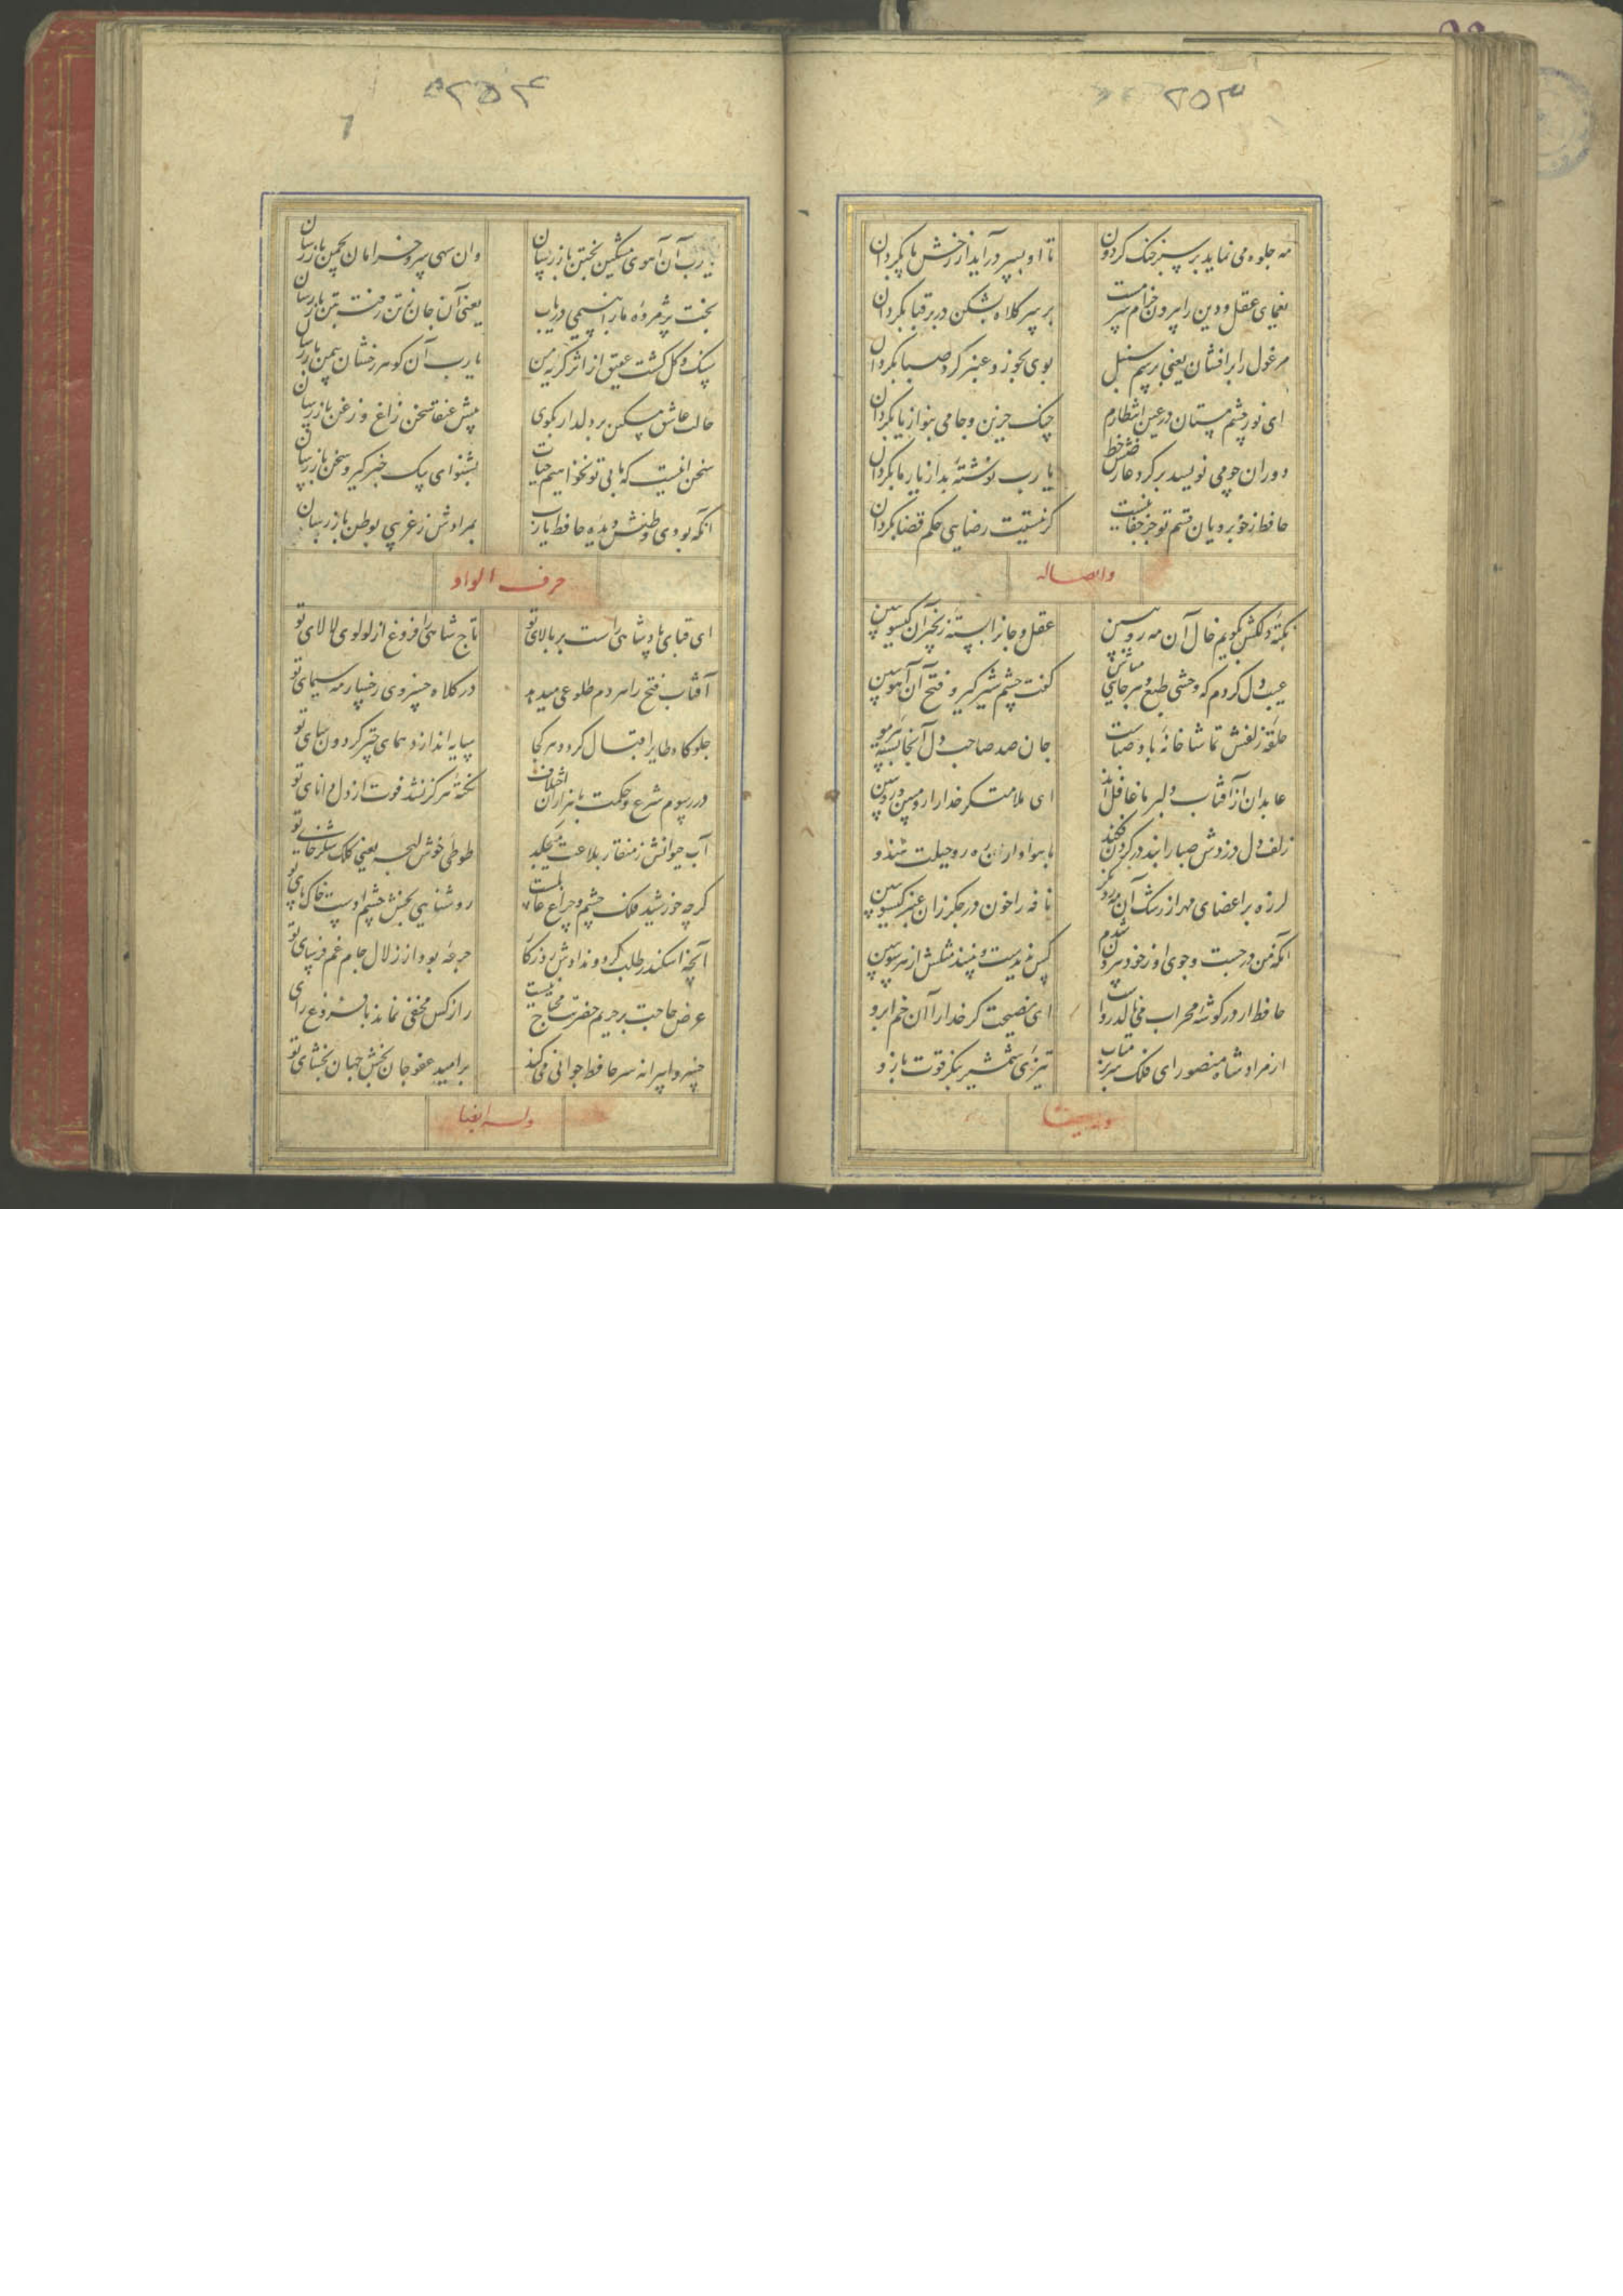 ۲۵۳
مه جلوه می نماید بر سبز خنک کردون تا او بسر درآید از رخش پا بکردان
یغمای عقل و دین را بیرون خرام سرمست بر سر کلاه بشکن در بر قبا بکردان
مرغول را برافشان یعنی برسم سنبل بوی بخور و عنبر کرد صبا بکردان
ای نور چشم مستان در عین انتظارم چنک حزین و جامی بنواز یا بکردان
دوران چو می نویسد بر کرد عارضش خط یا رب نوشتهٔ بد از یار ما بکردان
حافظ ز خوبرویان قسم تو جز جفا نیست کر نیستت رضایی حکم قضا بکردان
نکتهٔ دلکش بکویم خال آن مه رو ببین عقل و جانرا بستهٔ زنجیر آن کیسو ببین
عیب دل کردم که وحشی طبع و هرجایی مباش کفت چشم شیر کیر و فتح آن آهو ببین
حلقهٔ زلفش تماشا خانهٔ باد صباست جان صد صاحب دل آنجا بستهٔ یک مو ببین
عابدان از آفتاب دلبر ما غافل اند ای ملامت کر خدا را رو مبین و رو ببین
زلف دل دزدش صبا را بند در کردن فکند با هوا داران ره رو حیلت هندو
لرزه بر اعضای مهر از رشک آن مه رو نکر نافه را خون در جکر زان عنبر کیسو ببین
آنکه من در جست و جوی او ز خود بیرون شدم کس ندیدست و نبیند مثلش از هر سو ببین
حافظ ار در کوشهٔ محراب می نالد رواست ای نصیحت کر خدا را آن خم ابرو
از مراد شاه منصور ای فلک سر بر متاب تیزی شمشیر بنکر قوت بازو
۲۵۴
یا رب آن آهوی مشکین بختن باز رسان وان سهی سرو خرامان بچمن باز رسان
بخت پژمرده ما را بنسیمی دریاب یعنی آن جان ز تن رفته بتن باز رسان
سنک و کل کشت عقیق از اثر کریه من یا رب آن کوهر رخشان بیمن باز رسان
حالت عاشق مسکین بر دلدار بکوی پیش عنقا سخن زاغ و زغن باز رسان
سخن اینست که ما بی تو نخواهیم حیات بشنو ای پیک خبر کیر و سخن باز رسان
آنکه بودی وطنش دیده حافظ یا رب بمرادش ز غریبی بوطن باز رسان
حرف الواو
ای قبای پادشاهی راست بر بالای تو تاج شاهی را فروغ از لولوی لالای تو
آفتاب فتح را هر دم طلوعی میدهد در کلاه خسروی رخسار مه سیمای تو
جلوکاه طایر اقبال کردد هر کجا سایه اندازد همای چتر کردون سای تو
در رسوم شرع و حکمت با هزاران اختلاف نکتهٔ هرکز نشد فوت از دل دانای تو
آب حیوانش ز منقار بلاغت میچکد طوطی خوش لهجه یعنی کلک شکر خای تو
کرچه خورشید فلک چشم و چراغ عالمست روشنایی بخش چشم اوست خاک پای تو
آنچه اسکندر طلب کرد و ندادش روزکار جرعهٔ بود از زلال جام غم فرسای تو
عرض حاجت بر حریم حضرتت محتاج نیست راز کس مخفی نماند با فروغ رای
خسروا پیرانه سر حافظ جوانی می کند بر امید عفو جان بخش جهان بخشای تو
وله ایضا